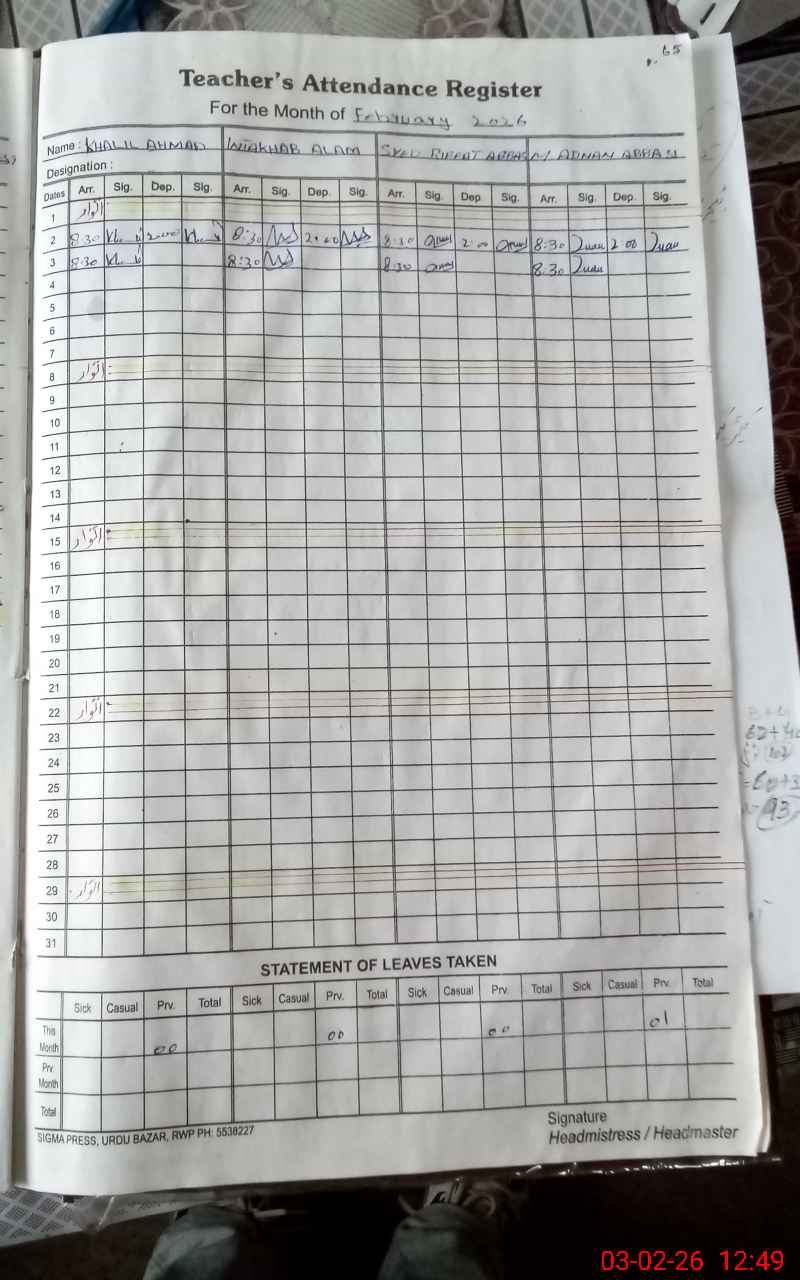 P. 65
Teacher's Attendance Register
For the Month of February 2026
Name : KHALIL AHMAD INTAKHAB ALAM SYED RIFFAT ABBAS M ADNAN ABBASI
Designation :
Dates Arr. Sig. Dep. Sig. Arr. Sig. Dep. Sig. Arr. Sig. Dep. Sig. Arr. Sig. Dep. Sig.
1 اتوار
2 8:30 2:00 8:30 2:00 8:30 2:00 8:30 2:00
3 8:30 8:30 8:30 8:30
4
5
6
7
8 اتوار
9
10
11
12
13
14
15 اتوار
16
17
18
19
20
21
22 اتوار
23
24
25
26
27
28
29 اتوار
30
31
STATEMENT OF LEAVES TAKEN
Sick Casual Prv. Total Sick Casual Prv. Total Sick Casual Prv. Total Sick Casual Prv. Total
This Month 00 00 00 01
Prv. Month
Total
SIGMA PRESS, URDU BAZAR, RWP PH: 5538227
Signature
Headmistress / Headmaster
03-02-26 12:49